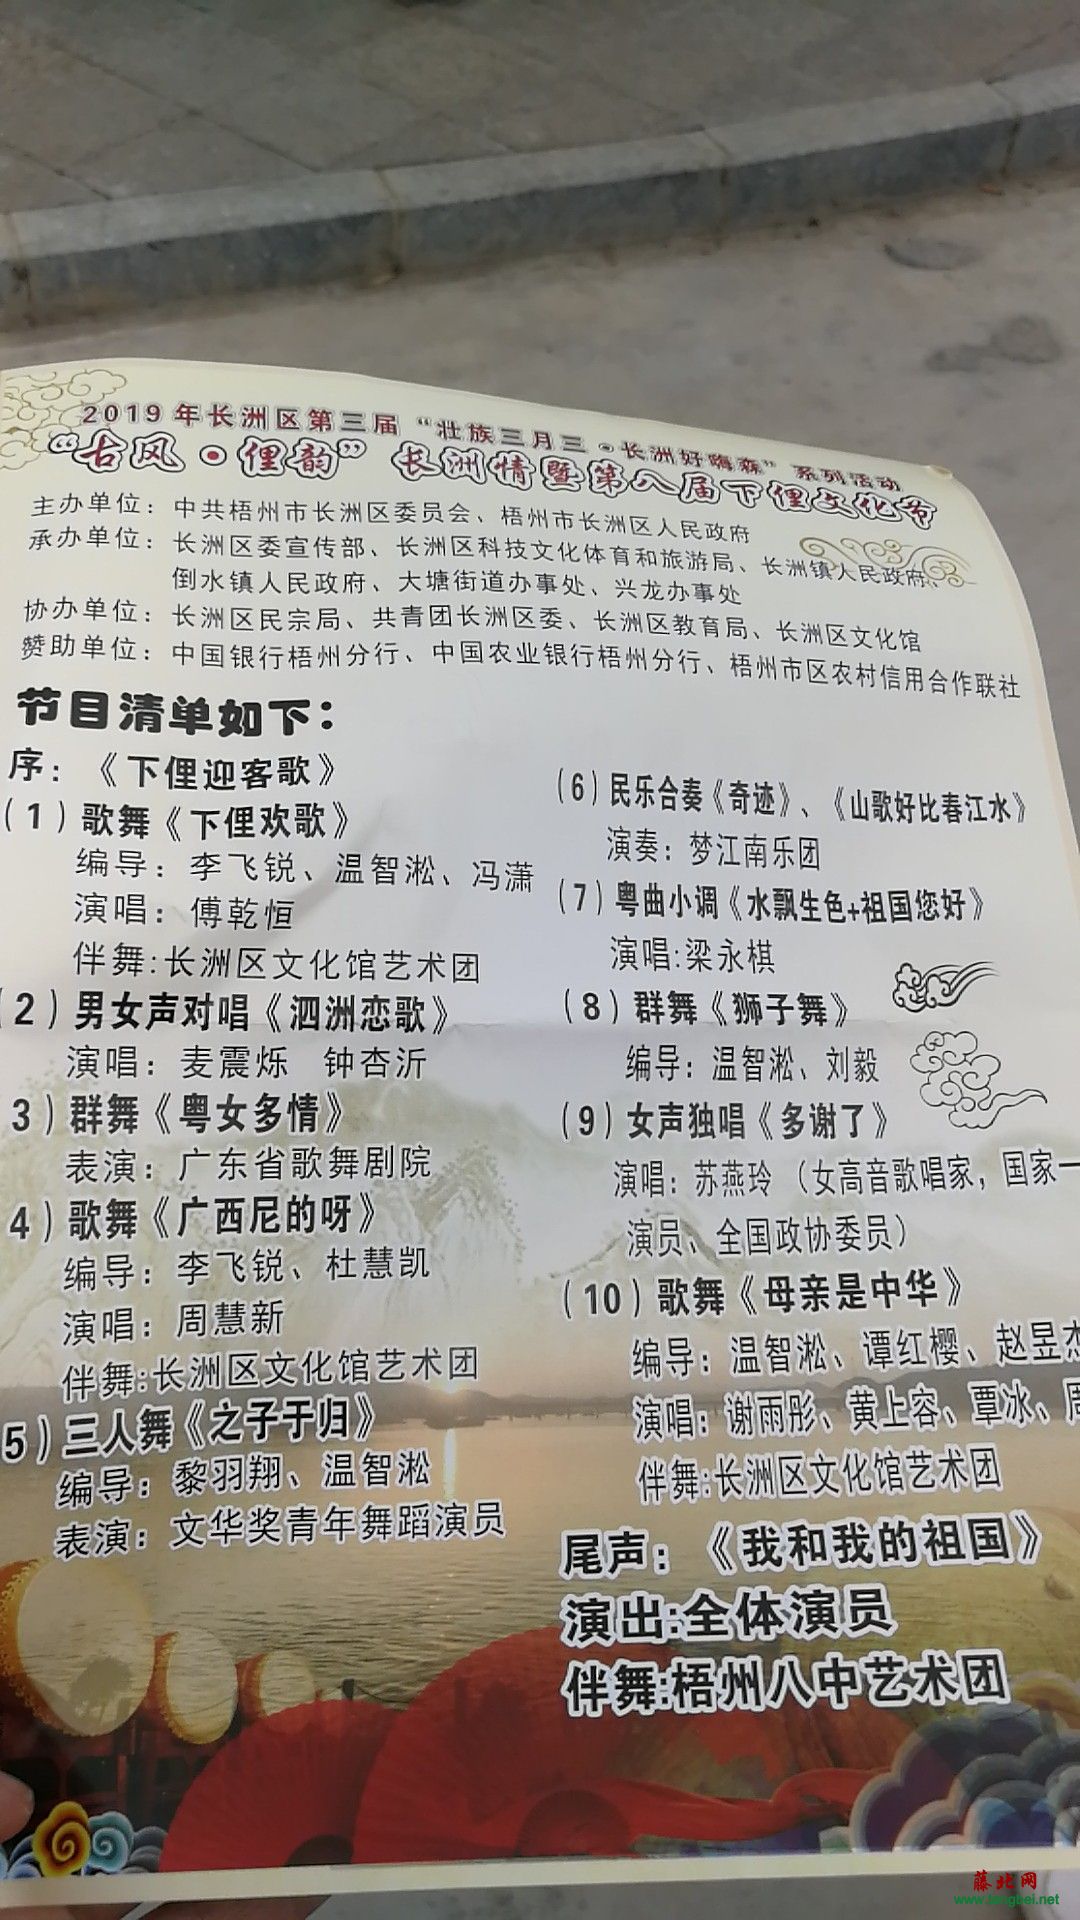 2019年长洲区第三届“壮族三月三·长洲好嗨森”系列活动
“古风·俚韵”长洲情暨第八届下俚文化节
主办单位：中共梧州市长洲区委员会、梧州市长洲区人民政府
承办单位：长洲区委宣传部、长洲区科技文化体育和旅游局、长洲镇人民政府、
倒水镇人民政府、大塘街道办事处、兴龙办事处
协办单位：长洲区民宗局、共青团长洲区委、长洲区教育局、长洲区文化馆
赞助单位：中国银行梧州分行、中国农业银行梧州分行、梧州市区农村信用合作联社
节目清单如下：
序：《下俚迎客歌》
（1）歌舞《下俚欢歌》
编导：李飞锐、温智淞、冯潇
演唱：傅乾恒
伴舞:长洲区文化馆艺术团
（2）男女声对唱《泗洲恋歌》
演唱：麦震烁 钟杏沂
3）群舞《粤女多情》
表演：广东省歌舞剧院
4）歌舞《广西尼的呀》
编导：李飞锐、杜慧凯
演唱：周慧新
伴舞:长洲区文化馆艺术团
5）三人舞《之子于归》
编导：黎羽翔、温智淞
表演：文华奖青年舞蹈演员
（6）民乐合奏《奇迹》、《山歌好比春江水》
演奏：梦江南乐团
（7）粤曲小调《水飘生色+祖国您好》
演唱:梁永棋
（8）群舞《狮子舞》
编导：温智淞、刘毅
（9）女声独唱《多谢了》
演唱：苏燕玲（女高音歌唱家，国家一
演员、全国政协委员）
（10）歌舞《母亲是中华》
编导：温智淞、谭红樱、赵昱杰
演唱：谢雨彤、黄上容、覃冰、周
伴舞:长洲区文化馆艺术团
尾声：《我和我的祖国》
演出:全体演员
伴舞:梧州八中艺术团
藤北网
www.tengbei.net